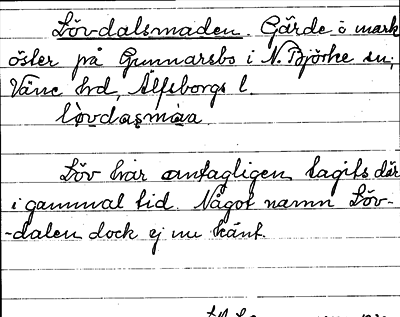 Lövdalsmaden. Gärde o mark
öster på Gunnarsbo i N. Björke sn;
Väne hrd, Älfsborgs l.
lö̀vdasmàa
Löv har antagligen tagits där
i gammal tid. Något namn Löv-
-dalen dock ej nu känt.